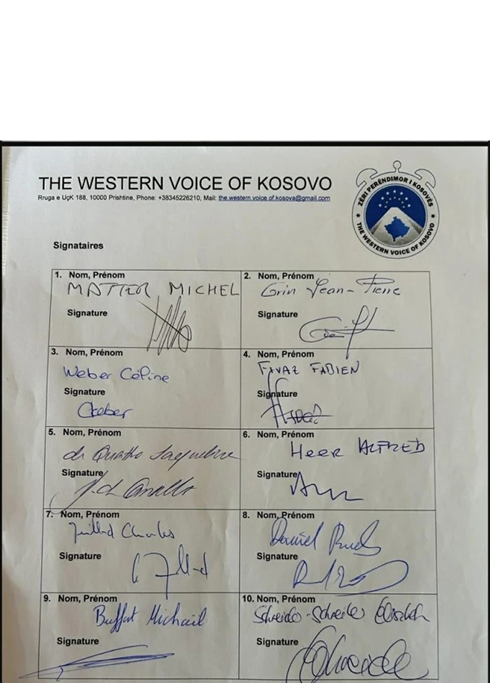 THE WESTERN VOICE OF KOSOVO
Rruga e UÇK 188, 10000 Prishtine, Phone: +38345226210, Mail: the.western.voice.of.kosova@gmail.com
ZËRI PERËNDIMOR I KOSOVËS
THE WESTERN VOICE OF KOSOVO
Signataires
1. Nom, Prénom
MATTER MICHEL
Signature
2. Nom, Prénom
Grin Jean-Pierre
Signature
3. Nom, Prénom
Weber Céline
Signature
4. Nom, Prénom
FAVRE FABIEN
Signature
5. Nom, Prénom
de Quattro Jacqueline
Signature
6. Nom, Prénom
HEER ALFRED
Signature
7. Nom, Prénom
Juillard Charles
Signature
8. Nom, Prénom
Daniel
Signature
9. Nom, Prénom
Buffat Michaël
Signature
10. Nom, Prénom
Schneider-Schneiter Elisabeth
Signature